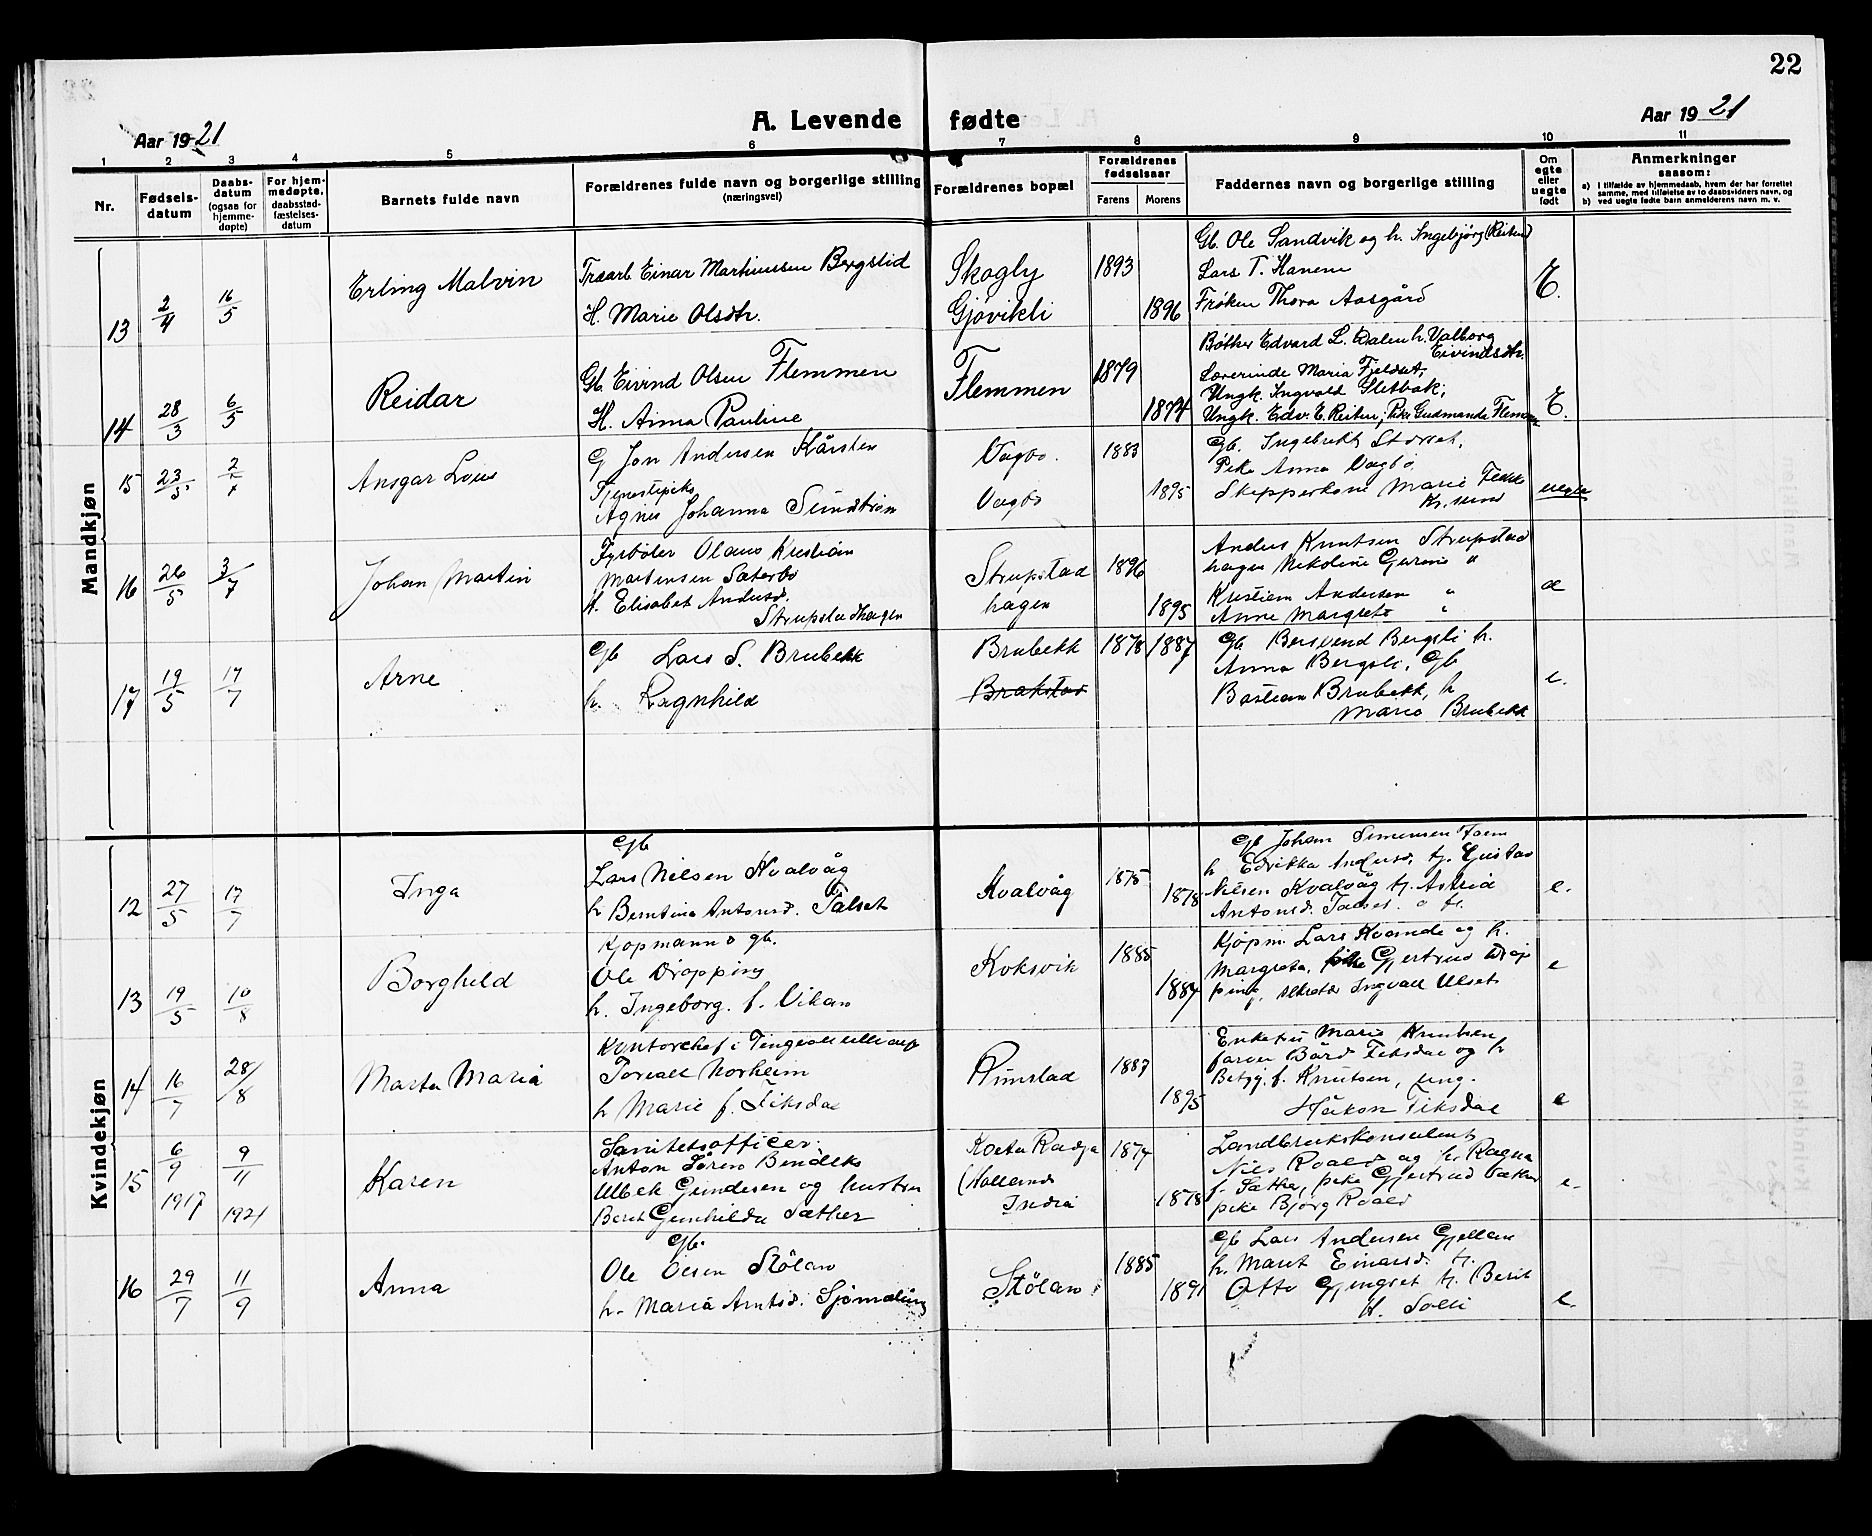 22
Aar 1921
A. Levende fødte
Aar 1921
1 2 3 4 5 6 7 8 9 10 11
Nr.
Fødsels-
datum
Daabs-
datum
(ogsaa for
hjemme-
døpte)
For hjem-
medøpte,
daabsstad-
fæstelses-
datum
Barnets fulde navn
Forældrenes fulde navn og borgerlige stilling
(næringsvei)
Forældrenes bopæl
Forældrenes
fødselsaar
Farens Morens
Faddernes navn og borgerlige stilling
Om
egte
eller
uegte
født
Anmerkninger
saasom:
a) I tilfælde av hjemmedaab, hvem der har forrettet
samme, med tilføielse av to daabsvidners navn, og
b) ved uegte fødte barn anmelderens navn m. v.
Mandkjøn
13 2/4 16/5
Erling Malvin
Traarb. Einar Martinusen Bergslid
H. Marie Olsdtr.
Skogly
Gjøvikli
1893
1896
Gb. Ole Sandvik og h. Ingebjørg (Reiten)
Lars T. Hanem
Frøken Thora Aasgård
E.
14 28/3 6/5
Reidar
Gb. Eivind Olsen Flemmen
H. Anna Pauline
Flemmen
1879
1874
Bøtker Edvard L. Dalen h. Valborg
Eivindsdtr.
Lærerinde Maria Fjeldset;
Ungk. Ingvald Sletbak;
Ungk. Edv. E. Reiten; Pike Gudmanda Flemmen
E.
15 23/5 2/7
Ansgar Louis
G Jon Andersen Kårsten
Tjenestepike
Agnes Johanna Sundstrøm
Vagbø.
Vagbø
1883
1895
Gb. Ingebrikt Storset,
Pike Anna Vagbø,
Skipperkone Marie
Kr.sund
uegte
16 26/5 3/7
Johan Martin
Fyrbøter Olaus Kristian
Martinsen Sæterbø
h. Elisabet Andersd.
Strupstadhagen
Strupstad
hagen
1896
1895
Anders Knutsen Strupstad
hagen Nikoline "
Kristian Andersen "
Anne Margrete "
æ
17 19/5 17/7
Arne
Gb Lars S. Brubekk
h. Ragnhild
Brubekk
Brakstad
1878 1887
Gb Bersvend Bergsli h.
Anna Bergsli, Gb
Bastian Brubekk, h
Marie Brubekk
e.
Kvindekjøn
12 27/5 17/7
Inga
Gb
Lars Nilsen Kvalvåg
h Berntina Antonsd. Talset
Kvalvåg
1875
1878
Gb Johan Simensen
h Edrikka Andersd, tj. Gustav
Nilsen Kvalvåg tj. Astrid
Antonsd. Talset
e.
13 19/5 10/8
Borghild
Kjøpmann o gb.
Ole Dropping
h. Ingeborg f. Vikan
Koksvik
1885
1887
Kjøpm. Lars Kvande og h.
Margreta, pike Gjertrud Drop
ping, Ingvald Ulset
e
14 16/7 28/8
Marta Maria
Kontorchef i Tingvoll
Torvald Norheim
h Marie f. Fiksdal
Rimstad
1887
1895
Enkefru Marie Knutsen
farver Bård Fiksdal og h
Betzy f. Knutsen, ung.
Håkon Fiksdal
e
15 6/9 1917 9/11 1921
Karen
Sanitetsofficer
Anton Søren Bendeks
Ulbek Gundesen og hustru
Beret Gunhilda Sæther
Kota Radja
(Hollandsk
India
1874
1878
Landbrukskonsulent
Nils Roald og h. Ragna
f. Sæther, pike Gjertrud Sæther
pike Bjørg Roald
e.
16 29/7 11/9
Anna
Gb.
Ole Olsen Stölan
h. Maria Arntsd. Sjømæling
Stölan
1885
1891
Gb Lars Andersen Gjellan
h. Marit Einarsd. tj.
Otto Gjengset tj. Berit
H. Solli
e.